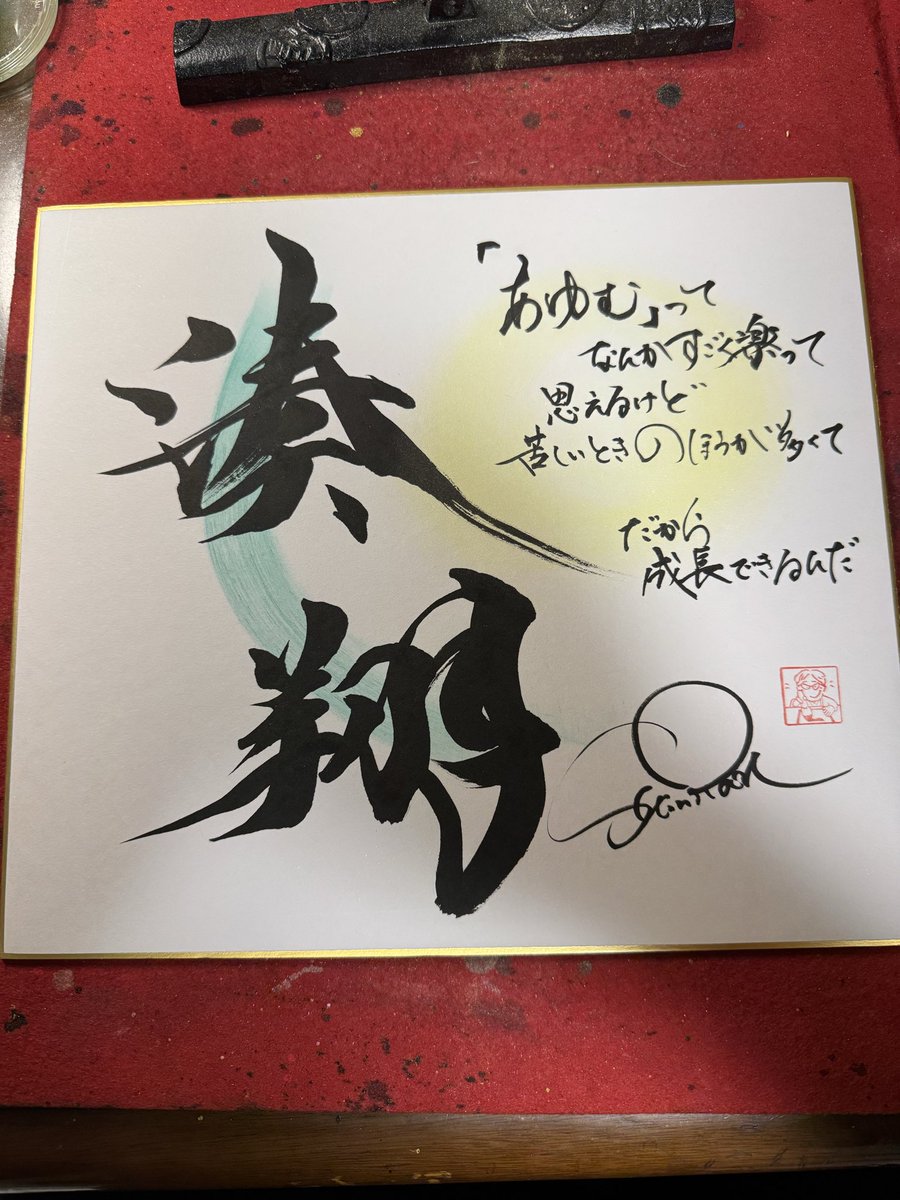 湊
翔
「あゆむ」って
なんかすごく楽って
思えるけど
苦しいときのほうが多くて
だから
成長できるんだ